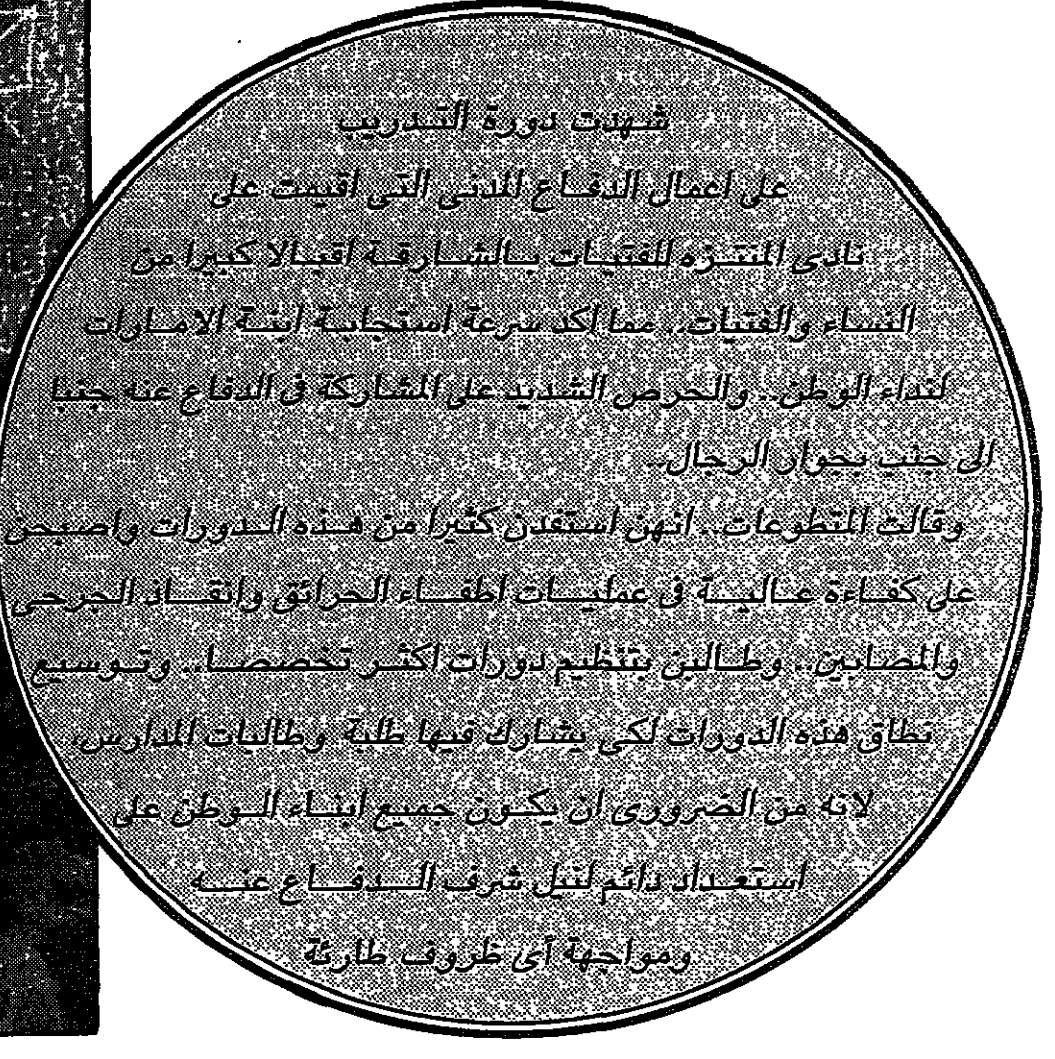 شهدت دورة التدريب
على اعمال الدفاع المدنى التى اقيمت على
نادى المنتزه للفتيات بالشارقة اقبالا كبيرا من
النساء والفتيات.. مما اكد سرعة استجابة ابنة الامارات
لنداء الوطن.. والحرص الشديد على المشاركة فى الدفاع عنه جنبا
الى جنب بجوار الرجال..
وقالت المتطوعات.. انهن استفدن كثيرا من هذه الدورات واصبحن
على كفاءة عالية فى عمليات اطفاء الحرائق وانقاذ الجرحى
والمصابين.. وطالبن بتنظيم دورات اكثر تخصصا.. وتوسيع
نطاق هذه الدورات لكى يشارك فيها طلبة وطالبات المدارس،
لانه من الضرورى ان يكون جميع ابناء الوطن على
استعداد دائم لنيل شرف الدفاع عنه
ومواجهة أى ظروف طارئة